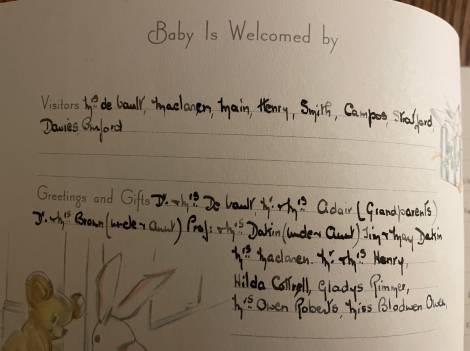 Baby Is Welcomed by
Visitors Mrs de Vault, Maclaren, Main, Henry, Smith, Campos, Strafford,
Davies
Greetings and Gifts Dr. & Mrs De Vault, Mr. & Mrs Adair (Grandparents)
Dr. & Mrs Brown (uncle & aunt) Prof. & Mrs Dakin (uncle & aunt) Jim & May Dakin
Mrs Maclaren. Mr & Mrs Henry,
Hilda Cottrell, Gladys Rimmer,
Mrs Owen Roberts, Miss Blodwen Owen,